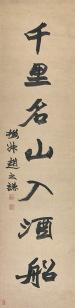 千里名山入酒船
撝叔趙之謙